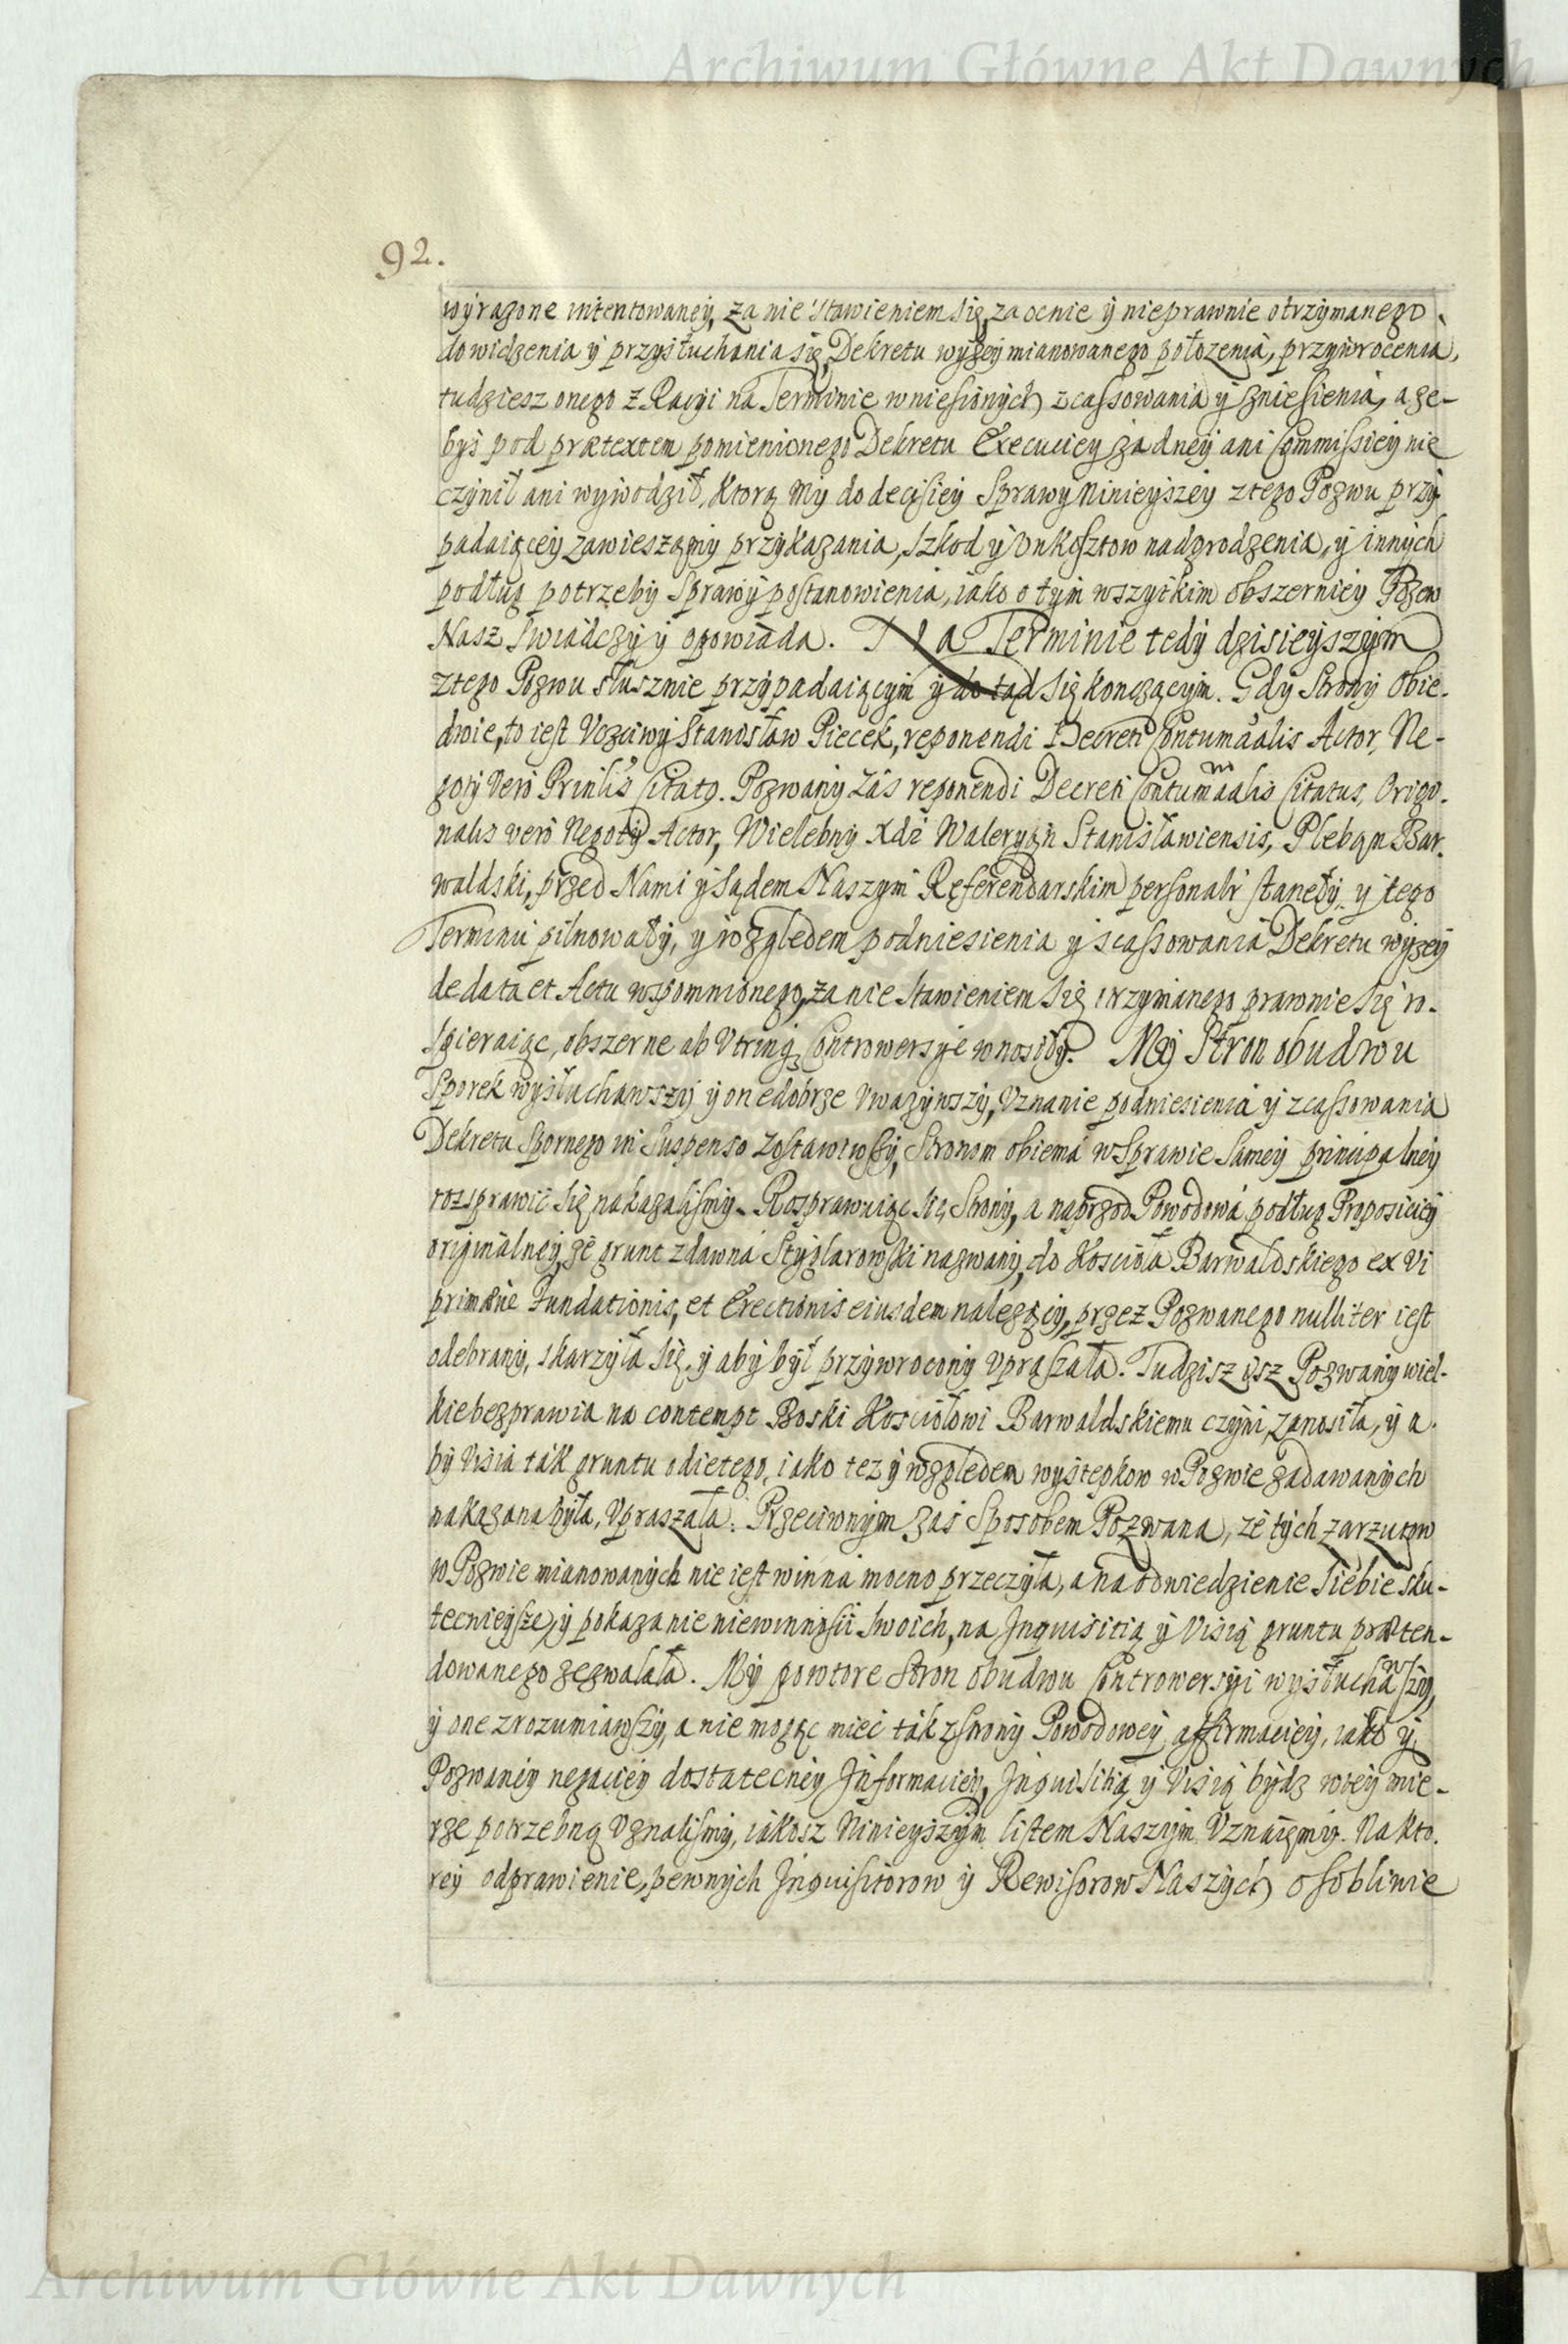 Archiwum Główne Akt Dawnych
92.
wyrazone intentowaney, za nie stawieniem się, zaocnie y nieprawnie otrzymanego
do widzenia y przysłuchania się, Dekretu wyżey mianowanego położenia, przywrocenia,
tudziesz onego z Racyi na Terminie wniesionych zcassowania y zniesienia, a że-
byś pod prætextem pomienionego Dekretu Execuciey żadney ani Commissiey nie
czynił ani wywodził, ktorą my do decisiey Sprawy Ninieyszey z tego Pozwu przy
padaiącey zawieszamy przykazania, szkod y Vnkosztow nadgrodzenia, y innych
podług potrzeby Sprawy postanowienia, iako o tym wszytkim obszerniey Pozew
Nasz swiadczy y opowiada. Na Terminie tedy dzisieyszym
z tego Pozwu słusznie przypadaiącym y do tąd się konczącym. Gdy Strony Obie-
dwie, to iest Vczciwy Stanisław Piecek, reponendi Decreti Contumacialis Actor, Ne-
gotÿ Vero Prinlis Citatq. Pozwany zás reponendi Decreti Contumacialis Citatus, Origi-
nalis vero Negotÿ Actor, Wielebny Xdz Waleryan Stanisławiensis, Pleban Bar-
waldski, przed Nami y Sądem Naszym Referendarskim personalr stanęły, y tego
Terminu pilnowały, y względem podniesienia y scassowania Dekretu wyżey
de data et Actu wspomnionego, za nie stawieniem się otrzymanego prawnie się ro-
spieraiąc, obszerne ab Vtrinq Controwersye wnosiły. My Stron obudwu
Sporek wysłuchawszy y one dobrze Vważywszy, Vznanie podniesienia y zcassowania
Dekretu Spornego in Suspenso Zostawiwszy, Stronom obiema w Sprawie Samey principalney
rozsprawić się nakazalismy. Rosprawuiąc się Strony, a naprzod Powodowa podług Proposiciey
originalney, że grunt zdawna Styglarowski nazwany, do Koscioła Barwaldskiego ex Vi
primæuæ Fundationis, et Erectionis eiusdem należący, przez Pozwanego nulliter iest
odebrany, skarzyła się, y aby był przywrocony Vpraszała. Tudzisz ysz Pozwany wiel-
kie bezprawia na contempt Boski Kosciołowi Barwaldskiemu czyni, zanosiła, y a-
by Visia ták gruntu odietego, iako tez y względem występkow w Pozwie zadawanych
nakazana była, Vpraszała. Przeciwnym zaś Sposobem Pozwana, że tych zarzutow
w Pozwie mianowanych nie iest winna mocno przeczyła, a na odwiedzienie siebie sku-
tecznieysze, y pokazanie niewinnosci swoich, na Inquisitią y Visią gruntu præten-
dowanego zezwalała. My powtore Stron obudwu Controwersyi wysłuchawszy,
y one zrozumiawszy, a nie mogąc mieć ták z strony Powodowey affirmaciey, iako y
Pozwaney negaciey dostateczney Informaciey, Inquisitią y Visią bydz w tey mie-
rze potrzebną Vznalismy, iákosz Ninieyszym listem Naszym Vznaięmy. Na kto-
rey odprawienie, pewnych Inquisitorow y Rewisorow Naszych osobliwie
Archiwum Główne Akt Dawnych